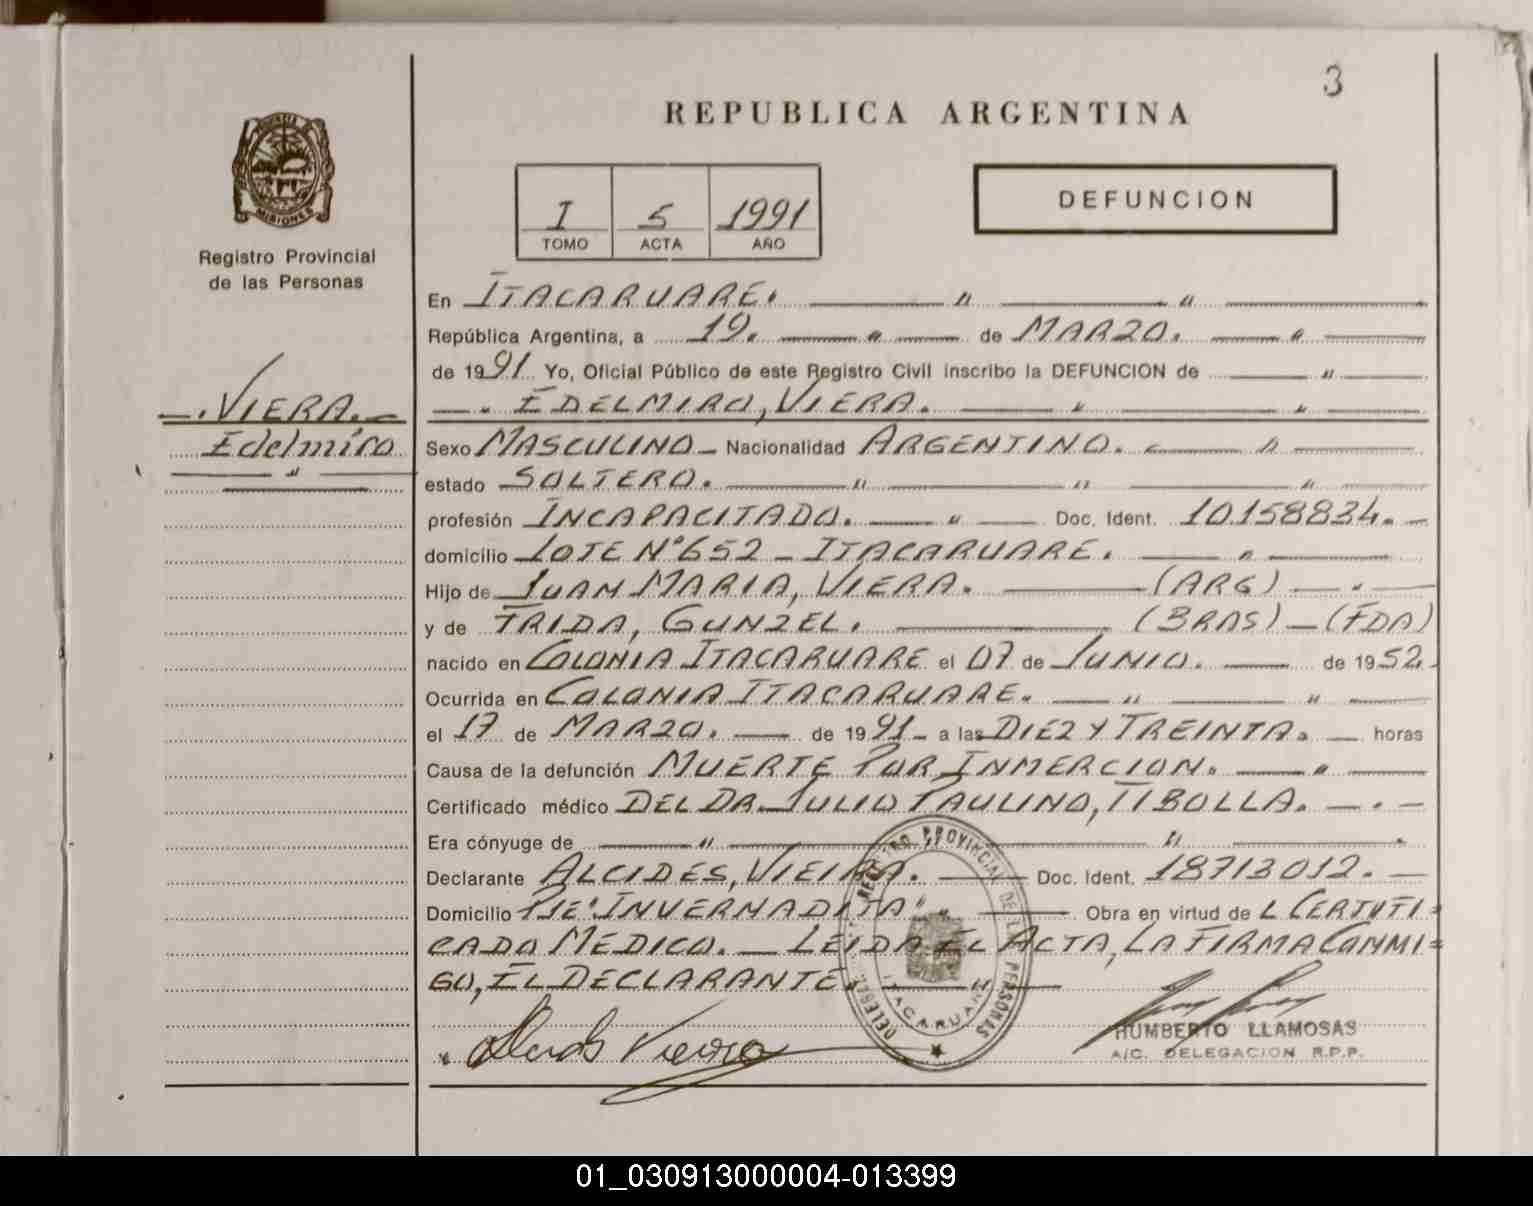 3
REPUBLICA ARGENTINA
PROVINCIA DE
MISIONES
Registro Provincial
de las Personas
I 5 1991
TOMO ACTA AÑO
DEFUNCION
En ITACARUARE. " "
República Argentina, a 19. " de MARZO. "
de 1991 Yo, Oficial Público de este Registro Civil inscribo la DEFUNCION de "
EDELMIRO, VIERA. " "
VIERA.
Edelmiro
"
Sexo MASCULINO Nacionalidad ARGENTINO. "
estado SOLTERO. " " "
profesión INCAPACITADO. " Doc. Ident. 10.158834.
domicilio LOTE Nº 652 - ITACARUARE. "
Hijo de JUAN MARIA, VIERA. (ARG)
y de TRIDA, GUNZEL. (BRAS) - (FDA)
nacido en COLONIA ITACARUARE el 07 de JUNIO. de 1952
Ocurrida en COLONIA ITACARUARE. " "
el 17 de MARZO. de 1991 a las DIEZ Y TREINTA. horas
Causa de la defunción MUERTE POR INMERCION. "
Certificado médico DEL DR. JULIO PAULINO, TIBOLLA.
Era cónyuge de " " "
Declarante ALCIDES, VIEIRA. Doc. Ident. 18713012.
Domicilio PJE' INVERNADITA" Obra en virtud de L CERTIFI=
CADO MEDICO. - LEIDA EL ACTA, LA FIRMA CONMI=
GO, EL DECLARANTE. "
REGISTRO PROVINCIAL DE LAS PERSONAS
ITACARUARE
Alcides Vieira
HUMBERTO LLAMOSAS
A/C. DELEGACION R.P.P.
01_030913000004-013399